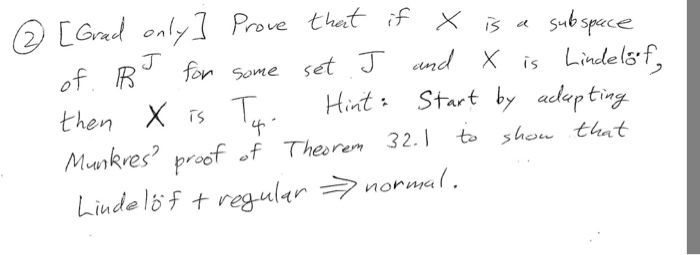 ② [Grad only] Prove that if X is a subspace
of ℝ^J for some set J and X is Lindelöf,
then X is T₄. Hint: Start by adapting
Munkres' proof of Theorem 32.1 to show that
Lindelöf + regular ⇒ normal.